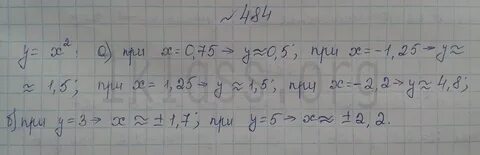 №484
y = x²; а) при x = 0,75 → y ≈ 0,5; при x = -1,25 → y ≈
≈ 1,5; при x = 1,25 → y ≈ 1,5; при x = -2,2 → y ≈ 4,8;
б) при y = 3 → x ≈ ± 1,7; при y = 5 → x ≈ ± 2,2.